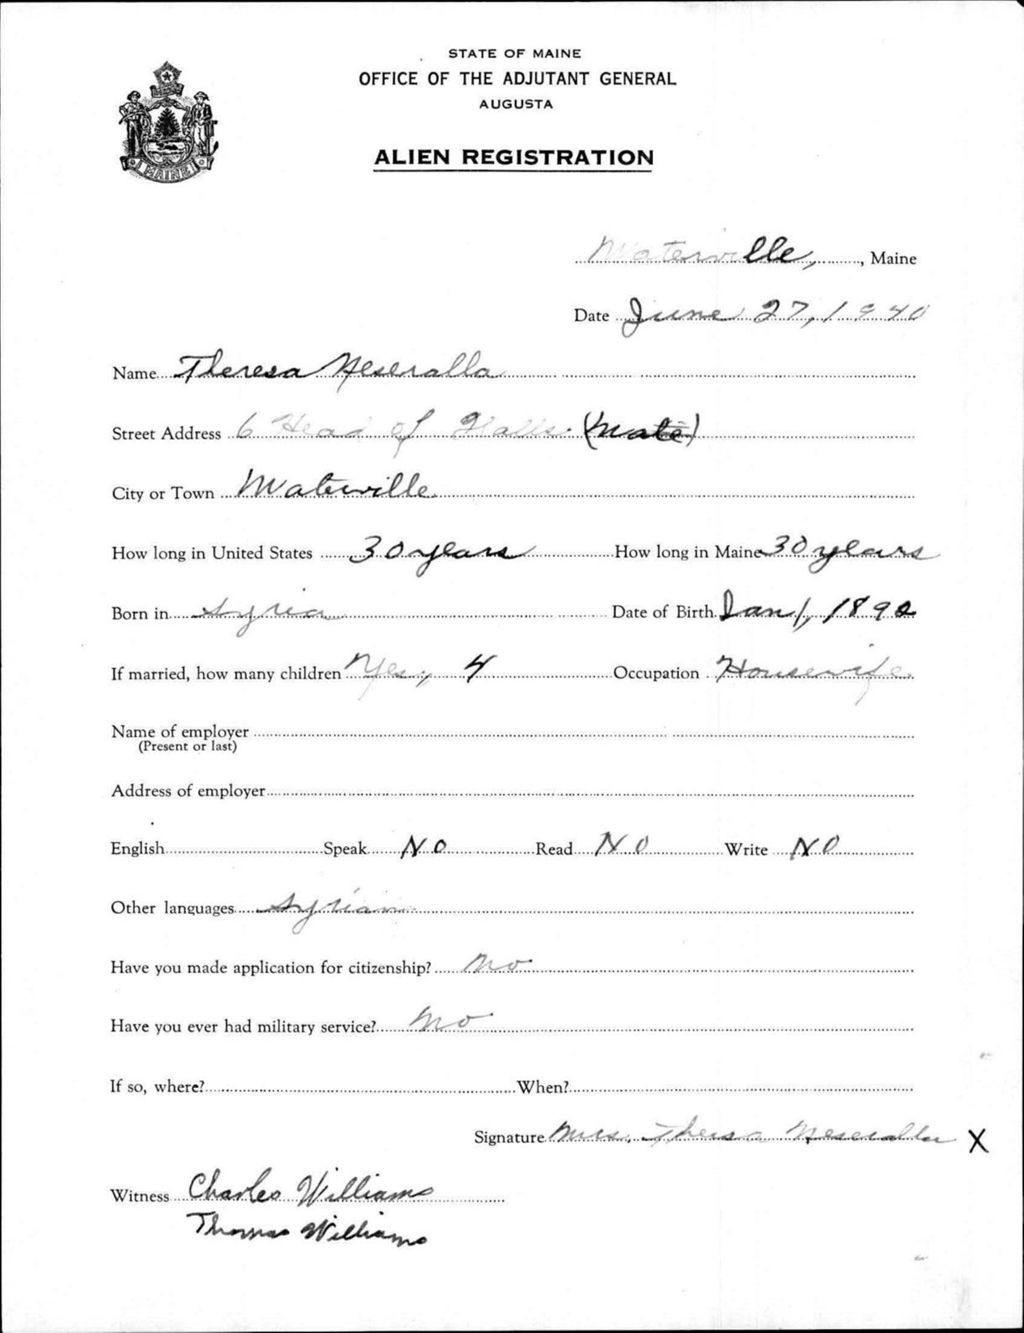 STATE OF MAINE
OFFICE OF THE ADJUTANT GENERAL
AUGUSTA
ALIEN REGISTRATION
MAINE
Waterville, , Maine
Date June 27, 1940
Name Theresa Neseralla
Street Address 6 Head of Falls (Wate)
City or Town Waterville
How long in United States 30 years How long in Maine 30 years
Born in Syria Date of Birth Jan 1, 1890
If married, how many children Yes, 4 Occupation Housewife
Name of employer
(Present or last)
Address of employer
English Speak NO Read NO Write NO
Other languages Syrian
Have you made application for citizenship? No
Have you ever had military service? No
If so, where? When?
Signature Mrs. Thersa Neseralla X
Witness Charles Williams
Thomas Williams